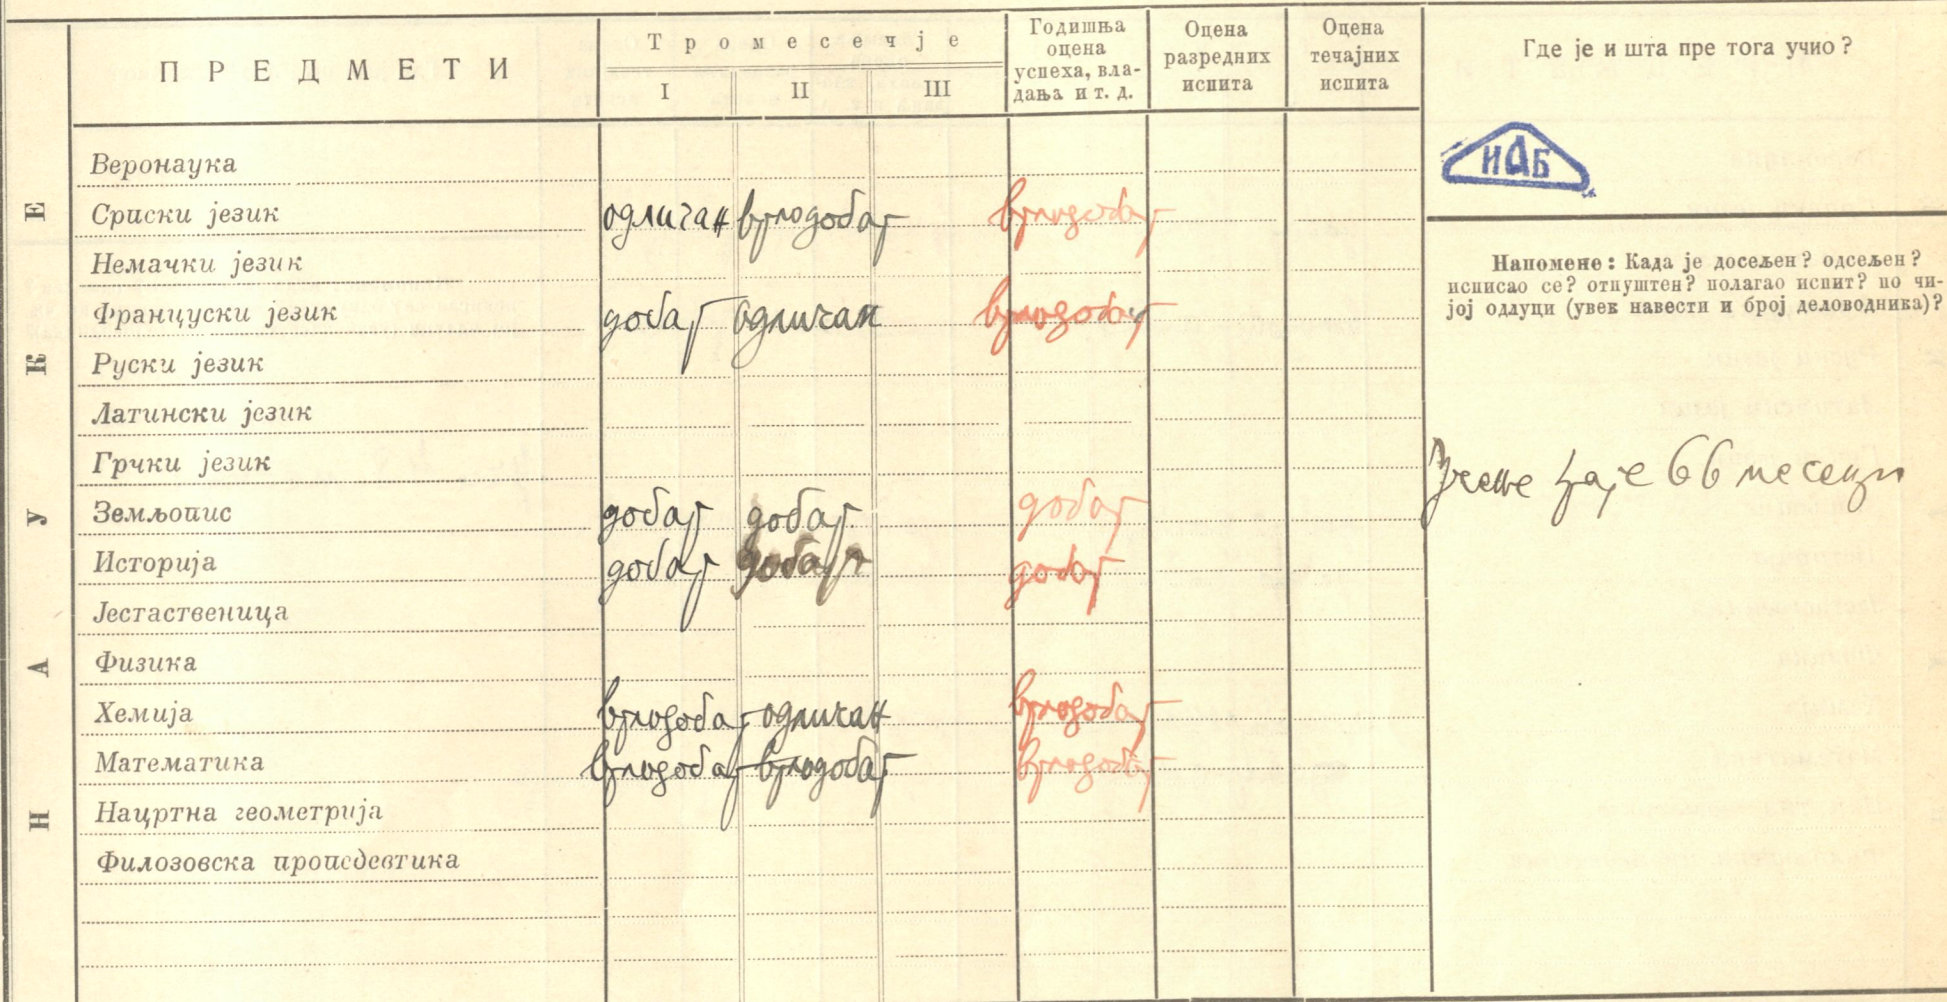 ПРЕДМЕТИ
Тромесечје
I II III
Годишња
оцена
успеха, вла-
дања и т. д.
Оцена
разредних
испита
Оцена
течајних
испита
Где је и шта пре тога учио?
НАУКЕ
ИАБ
Веронаука
Српски језик одличан врлодобар врлодобар
Немачки језик
Француски језик добар одличан врлодобар
Руски језик
Латински језик
Грчки језик
Земљопис добар добар добар
Историја добар добар добар
Јестаственица
Физика
Хемија врлодобар одличан врлодобар
Математика врлодобар врлодобар врлодобар
Нацртна геометрија
Филозовска пропедевтика
Напомене: Када је досељен? одсељен?
исписао се? отпуштен? полагао испит? по чи-
јој одлуци (увек навести и број деловодника)?
месеци